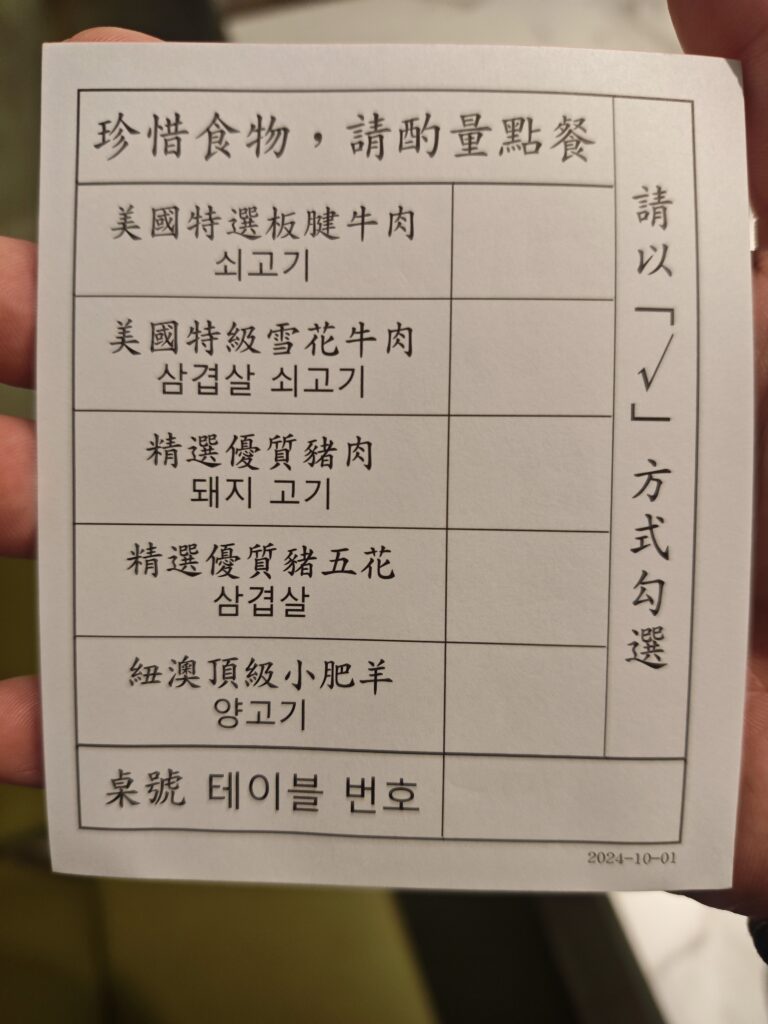 珍惜食物，請酌量點餐
請以「√」方式勾選
美國特選板腱牛肉
쇠고기
美國特級雪花牛肉
삼겹살 쇠고기
精選優質豬肉
돼지 고기
精選優質豬五花
삼겹살
紐澳頂級小肥羊
양고기
桌號 테이블 번호
2024-10-01